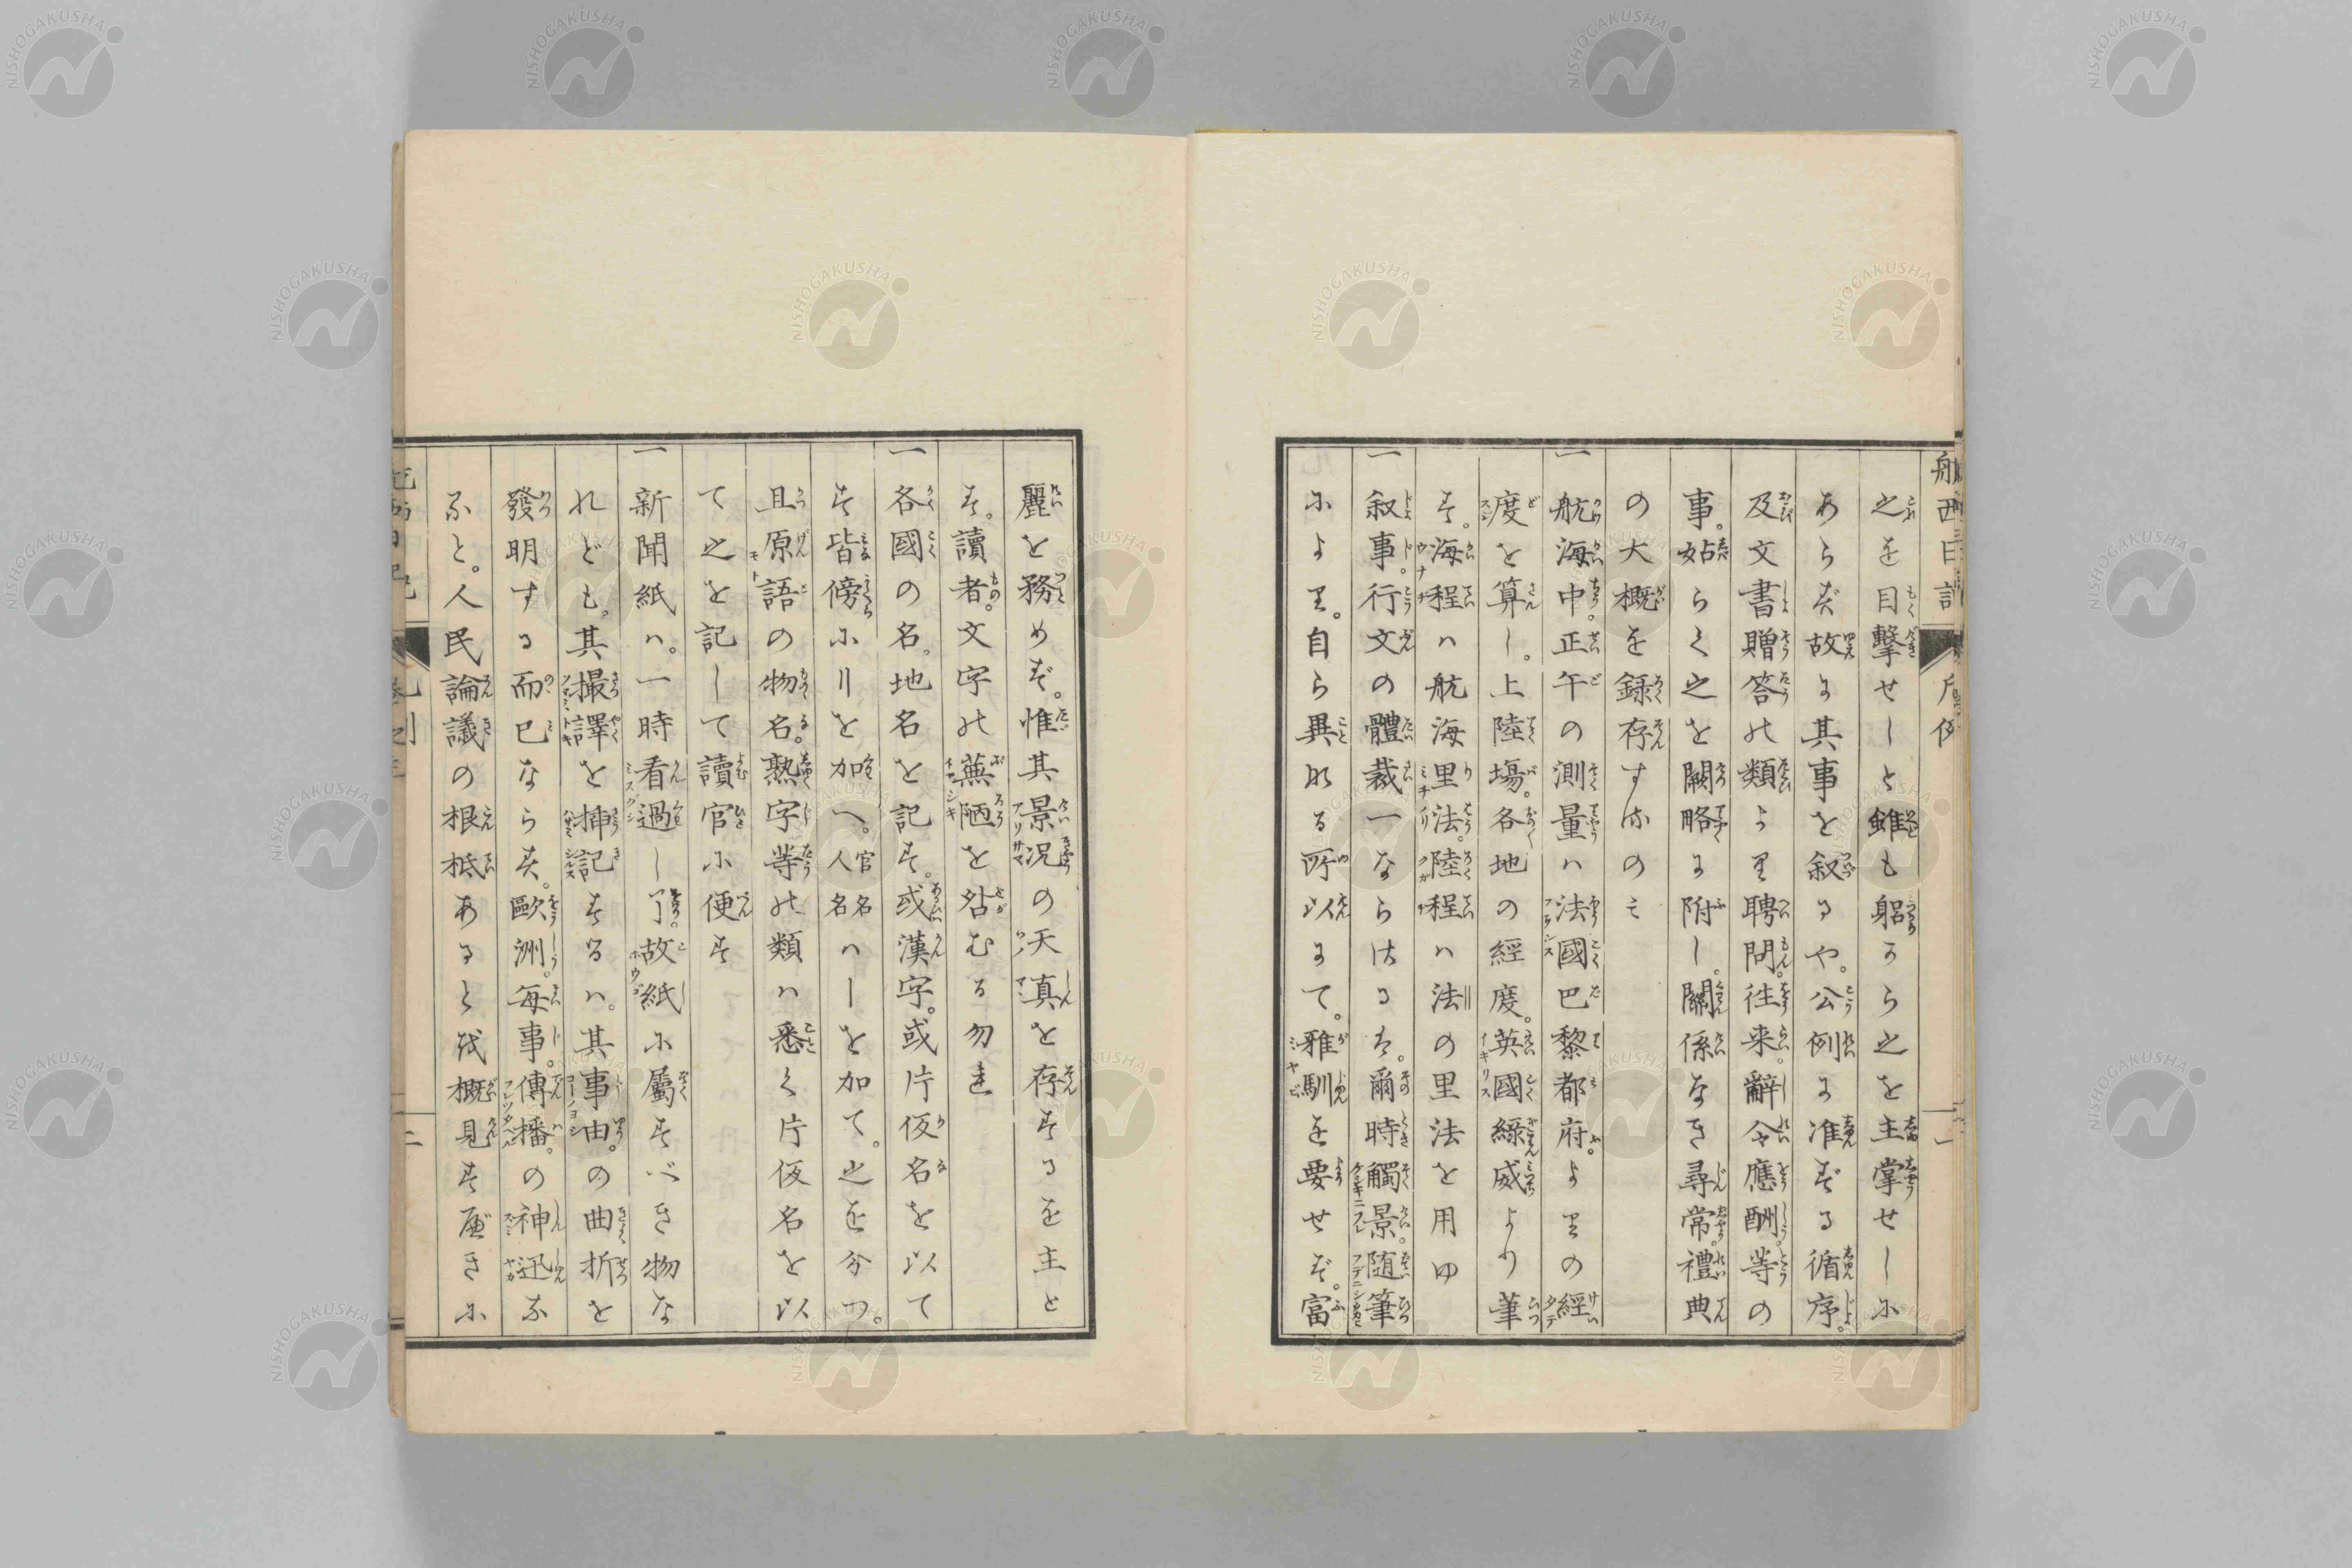 之を目撃せしと雖も躬から之を主掌せしに
あらず故に其事を叙るや。公例に准ずる循序。
及文書贈答の類より聘問。往来。辭令應酬。等の
事。姑らく之を闕略に附し。關係なき尋常。禮典
の大概を録存するのミ
一航海中。正午の測量ハ法國巴黎都府。よりの經
度を算し。上陸場。各地の經度。英國綠威より筆
す。海程ハ航海里法。陸程ハ法の里法を用ゆ
一叙事。行文の體裁一ならざるは。爾時觸景。随筆
による。自ら異なる所以にて。雅馴を要せず。富
麗を務めず。惟其景况の天真を存するを主と
す。讀者。文字の蕪陋を咎むる勿れ
一各國の名。地名を記す。或漢字。或片仮名を以て
す皆傍に〢を加へ。人名官名ハ〡を加て。之を分つ。
且原語の物名。熟字等の類ハ悉く片仮名を以
て之を記して讀官に便す
一新聞紙ハ。一時看過し了。故紙に屬すべき物な
れども。其撮譯を挿記するハ。其事由。の曲折を
發明する而已ならず。歐洲。毎事。傳播。の神迅な
ると。人民論議の根柢あるとを概見すべきに
航西日記
凡例
一
NISHOGAKUSHA